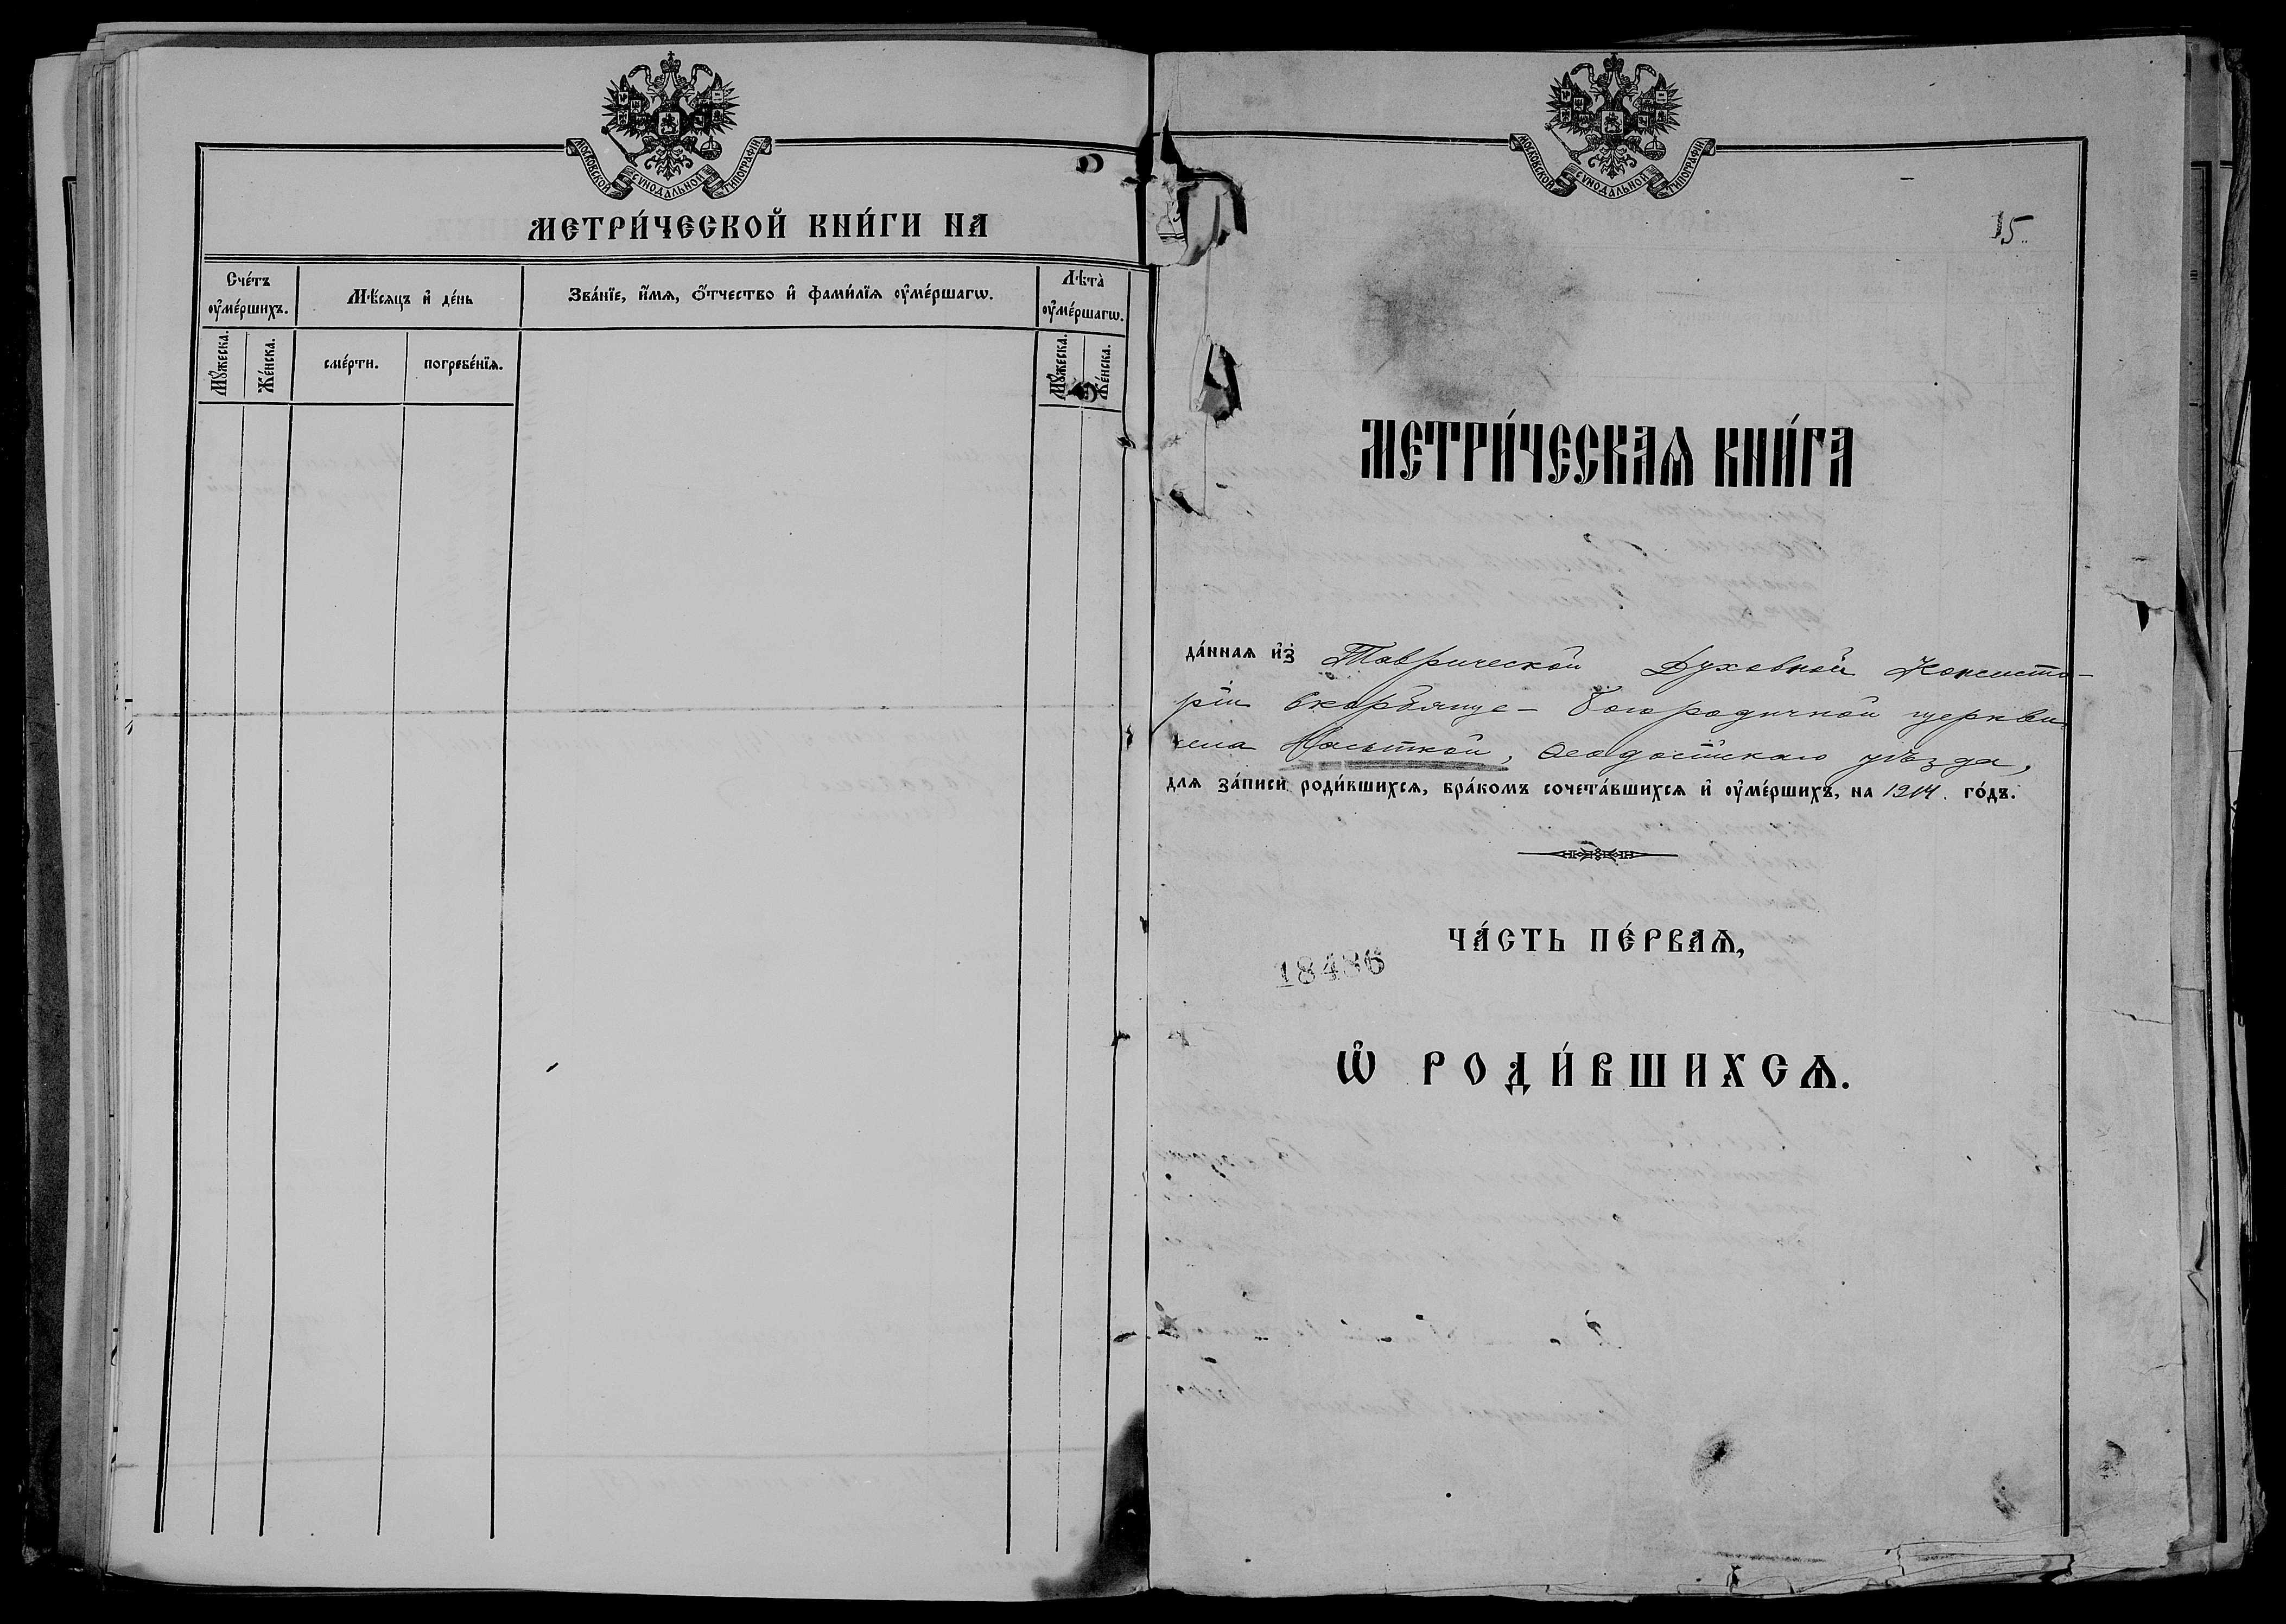 МОСКОВСКОЙ СѴНОДАЛЬНОЙ ТИПОГРАФІИ
МЕТРИ́ЧЕСКОЙ КНИ́ГИ НА
Сче́тъ ᲂу҆ме́ршихъ.
Мѣ́сяцъ и҆ де́нь
Зва́нїе, и҆́мѧ, ѻ҆́тчество и҆ фами́лїѧ ᲂу҆ме́ршагѡ.
Лѣта̀ ᲂу҆ме́ршагѡ.
Мꙋ́жеска.
Же́нска.
сме́рти.
погребе́нїѧ.
Мꙋ́жеска.
Же́нска.
МОСКОВСКОЙ СѴНОДАЛЬНОЙ ТИПОГРАФІИ
15.
МЕТРИ́ЧЕСКАѦ КНИ́ГА
да́ннаѧ и҆з̾ Таврической Духовной Консисто-
ріи скорбяще-Богородичной церкви
села Насыпкой, Ѳеодосійскаго уѣзда,
для за́писи роди́вшихсѧ, бра́комъ сочета́вшихсѧ и҆ ᲂу҆ме́ршихъ, на 1914. го́дъ.
ЧА́СТЬ ПЕ́РВАѦ,
18486
Ѡ҆ РОДИ́ВШИХСѦ.